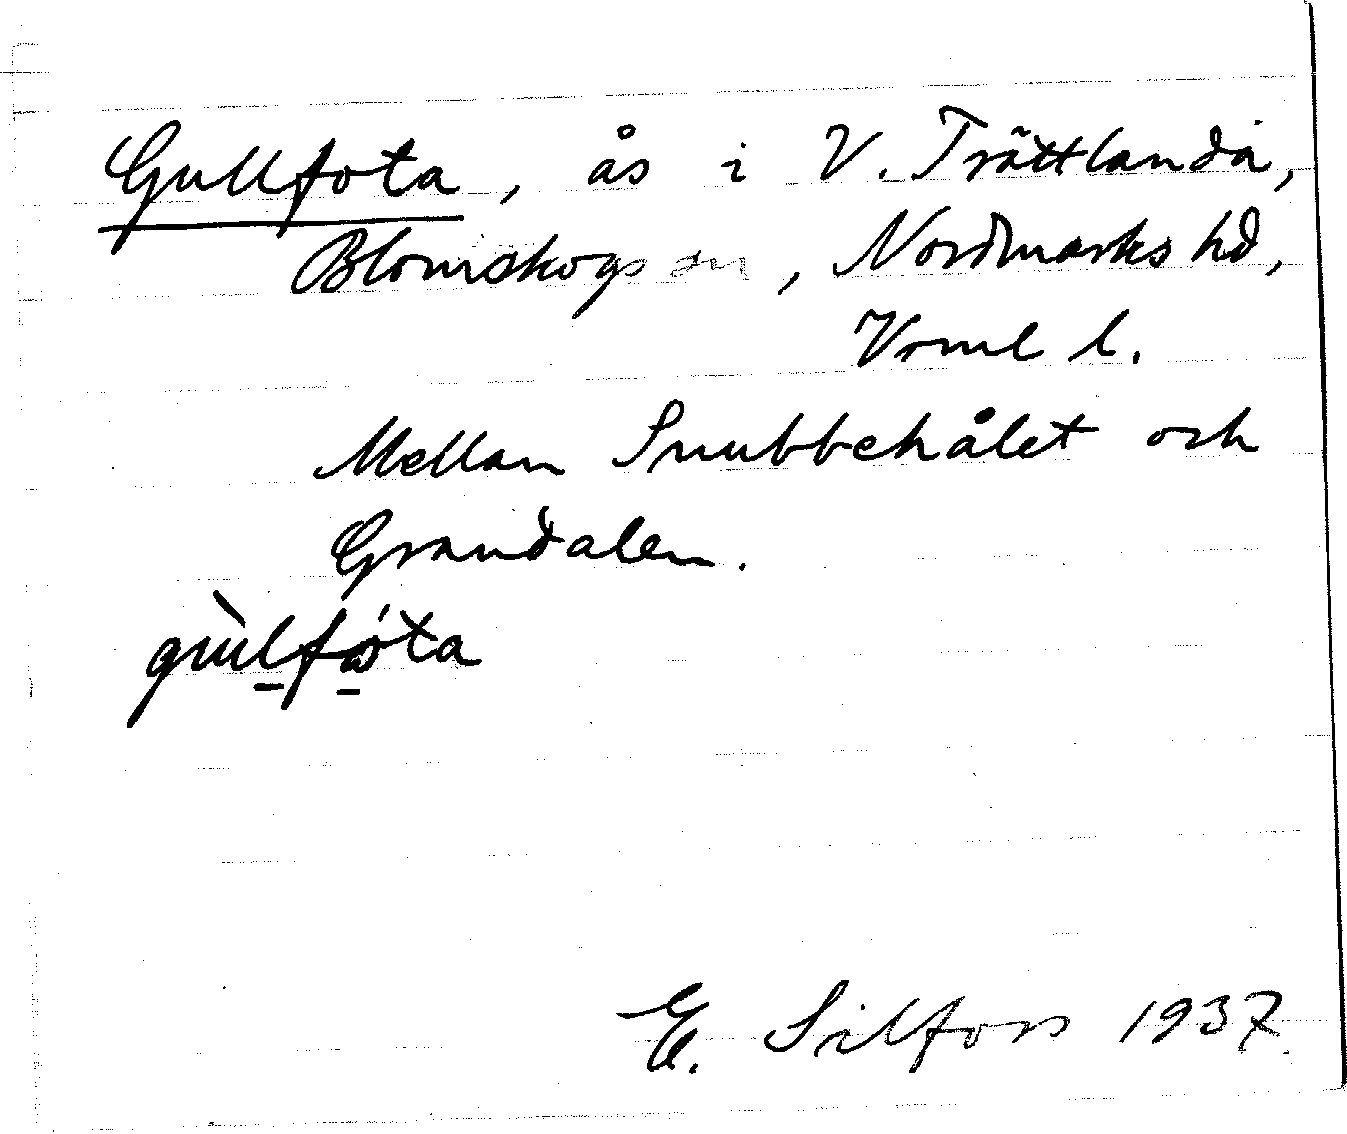 Gullfota, ås i V. Trättlanda,
Blomskogs sn, Nordmarks hd,
Vrml l.
Mellan Snubbehålet och
Grandalen.
gùlfóta
E. Silfors 1937